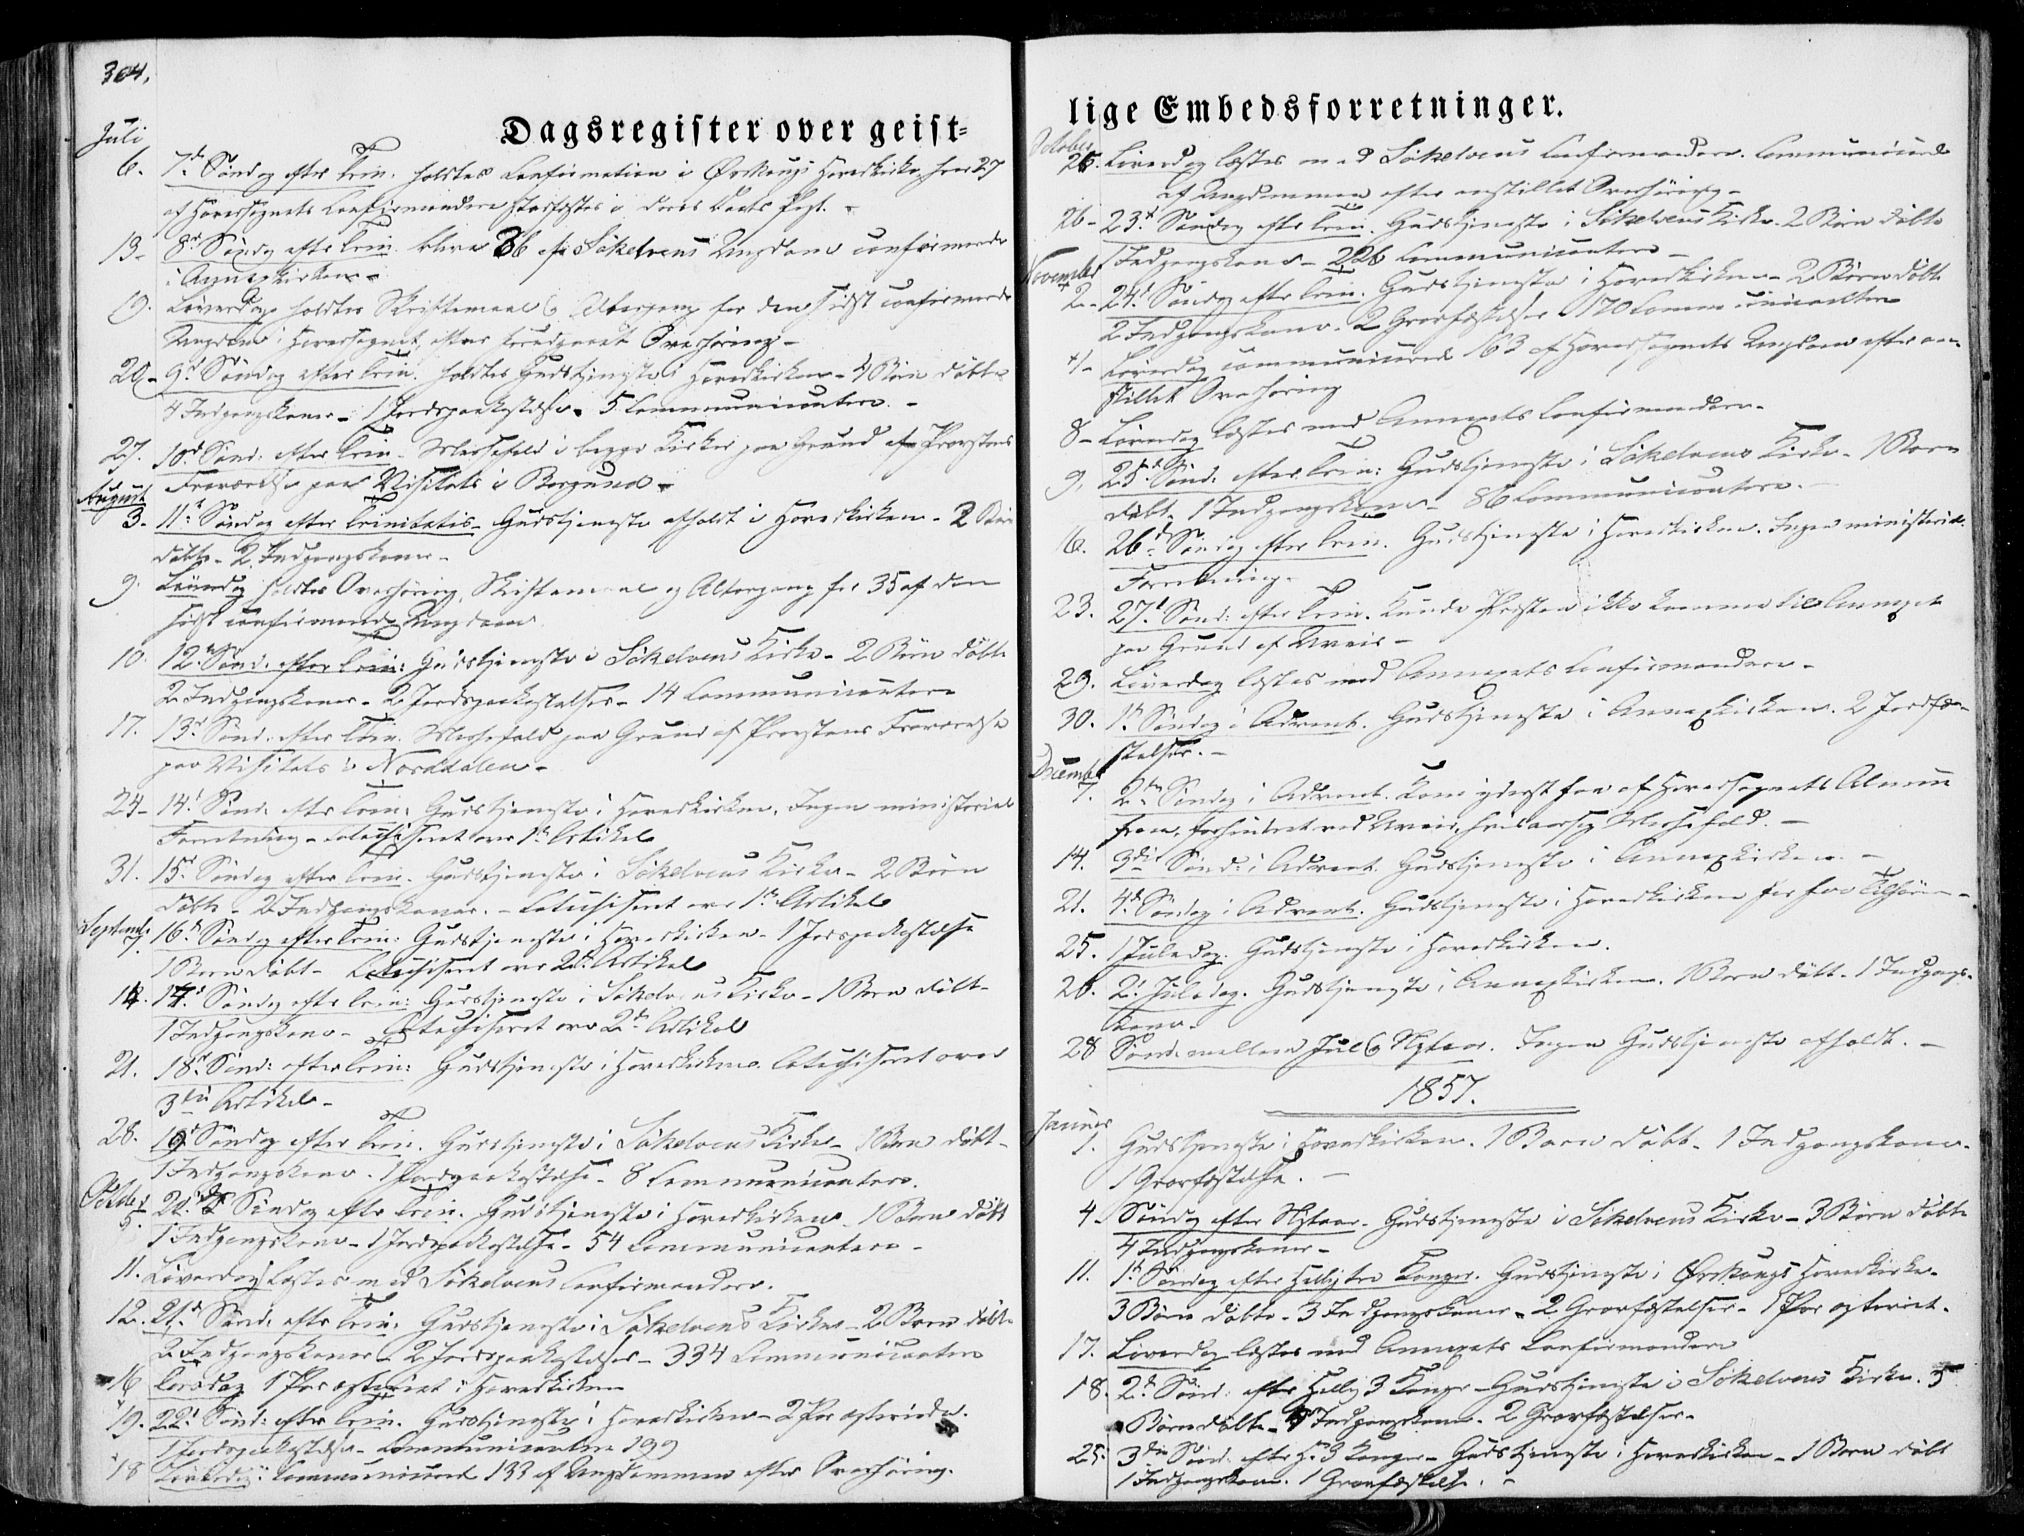 304.
Dagsregister over geist=
Juli
6. 7de Søndag efter Trin. holdtes Confirmation i Ørskougs Hovedkirke, hvor 27
af Hovedsognets Confirmander stadfæstes i deres Daabs Pagt. -
13- 8de Søndag efter Trin. bleve 36 af Søkelvens Ungdom confirmerede
i Annexkirken -
19. Løverdag holdtes Skriftemaal og Altergang for den sidst confirmerede
Ungdom i Hovedsognet, efter foregaaet Overhøring -
20- 9de Søndag efter Trin. holdtes Gudstjeneste i Hovedkirken - 4 Børn døbte
4 Indgangskoner - 1 Jordspaakastelse. 5 Communicantere. -
27. 10de Sønd: efter Trin. Messefald i begge Kirker paa Grund af Provstens
Fraværelse paa Visitats i Borgund -
August
3. 11te Søndag efter Trinitatis - Gudstjeneste afholdt i Hovedkirken - 2 Børn
døbte - 2 Indgangskoner -
9. Løverdag holdtes Overhøring, Skriftemaal og Altergang for 35 af den
sidst confirmerede Ungdom
10. 12te Sønd. efter Trin: Gudstjeneste i Søkelvens Kirke - 2 Børn døbte
2 Indgangskoner - 2 Jordspaakastelser - 14 Communicantere
17. 13de Sønd. efter Trin. Messefald paa Grund af Provstens Fraværelse
paa Visitats i Norddalen -
24- 14de Sønd. efter Trin: Gudstjeneste i Hovedkirken, Ingen ministeriel
Forretning - Catechiseret over 1ste Artikel
31. 15de Søndag efter Trin. Gudstjeneste i Søkelvens Kirke - 2 Børn
døbte - 2 Indgangskoner. - Catechiseret over 1ste Artikel
Septembr
7. 16de Søndag efter Trin: Gudstjeneste i Hovedkirken - 1 Jordspaakastelse
1 Barn døbt - Catechiseret over 2den Artikel
14. 17de Søndag efter Trin: Gudstjeneste i Søkelvens Kirke - 1 Barn døbt -
1 Indgangskone - Catechiseret over 2den Artikel
21. 18de Sønd: efter Trin: Gudstjeneste i Hovedkirken. Catechiseret over
3die Artikel -
28. 19de Søndag efter Trin. Gudstjeneste i Søkelvens Kirke - 1 Barn døbt -
1 Indgangskone - 1 Jordspaakastelse - 8 Communicantere.
October
5. 20de Søndag efter Trin. Gudstjeneste i Hovedkirken - 1 Barn døbt
1 Indgangskone - 1 Jordspaakastelse - 54 Communicantere -
11. Løverdag læstes med Søkelvens Confirmandere.
12. 21de Sønd. efter Trin: Gudstjeneste i Søkelvens Kirke - 2 Børn døbte
2 Indgangskoner - 2 Jordspaakastelser - 334 Communicantere
16 Torsdag 1 Par ægteviet i Hovedkirken
19. 22de Sønd: efter Trin. Gudstjeneste i Hovedkirken - 2 Par ægteviede.
1 Jordspaakastelse - Communicantere 199
18 Løverdag: Communicerede 133 af Ungdommen efter Overhøring.
lige Embedsforretninger.
October
25. Løverdag læstes med Søkelvens Confirmandere. Communicerede
af Ungdommen efter anstillet Overhøring -
26- 23de Søndag efter Trin. Gudstjeneste i Søkelvens Kirke. 2 Børn døbte
1 Indgangskone - 226 Communicantere -
November
2- 24de Søndag efter Trin. Gudstjeneste i Hovedkirken - 2 Børn døbte
2 Indgangskoner. 2 Gravfæstelser 170 Communicantere
1- Løverdag communicerede 163 af Hovedsognets Ungdom efter an-
stillet Overhøring
8- Løverdag læstes med Annexets Confirmandere -
9. 25de Sønd: efter Trin: Gudstjeneste i Søkelvens Kirke - 1 Barn
døbt - 1 Indgangskone - 86 Communicantere. -
16. 26de Søndag efter Trin. Gudstjeneste i Hovedkirken. Ingen ministeriel
Forretning -
23. 27de Sønd: efter Trin. Kunde Præsten ikke komme til Annexet
paa Grund af Uveir -
29. Løverdag læstes med Annexets Confirmandere -
30. 1ste Søndag i Advent. Gudstjeneste i Annexkirken. 2 Jordfæ-
stelser. -
December
7. 2den Søndag i Advent. Kom yderst faa af Hovedsognets Almue
frem, forhindret ved Uveir, hvisaarsag Messefald. -
14. 3die Sønd: i Advent. Gudstjeneste i Annexkirken. -
21. 4de Søndag i Advent. Gudstjeneste i Hovedkirken for faa Tilhørere -
25. 1 Juledag. Gudstjeneste i Hovedkirken.
26. 2den Juledag. Gudstjeneste i Annexkirken. 1 Barn døbt. 1 Indgangs-
kone.
28 Sønd. mellem Jul og Nytaar. Ingen Gudstjeneste afholdt. -
1857.
Januar
1. Gudstjeneste i Hovedkirken. 1 Barn døbt - 1 Indgangskone.
1 Gravfæstelse. -
4. Søndag efter Nytaar. Gudstjeneste i Søkelvens Kirke - 3 Børn døbte
4 Indgangskoner -
11. 1ste Søndag efter Hellig tre Konger. Gudstjeneste i Ørskougs Hovedkirke.
3 Børn døbte - 3 Indgangskoner - 2 Gravfæstelser - 1 Par ægteviet.
17. Løverdag læstes med Annexets Confirmandere
18. 2den Sønd. efter Hellig 3 Konger - Gudstjeneste i Søkelvens Kirke. 5
Børn døbte - Indgangskoner. 2 Gravfæstelser -
25. 3die Sønd. efter H. 3 Konger - Gudstjeneste i Hovedkirken - 1 Barn døbt
1 Indgangskone. 1 Gravfæstelse. -